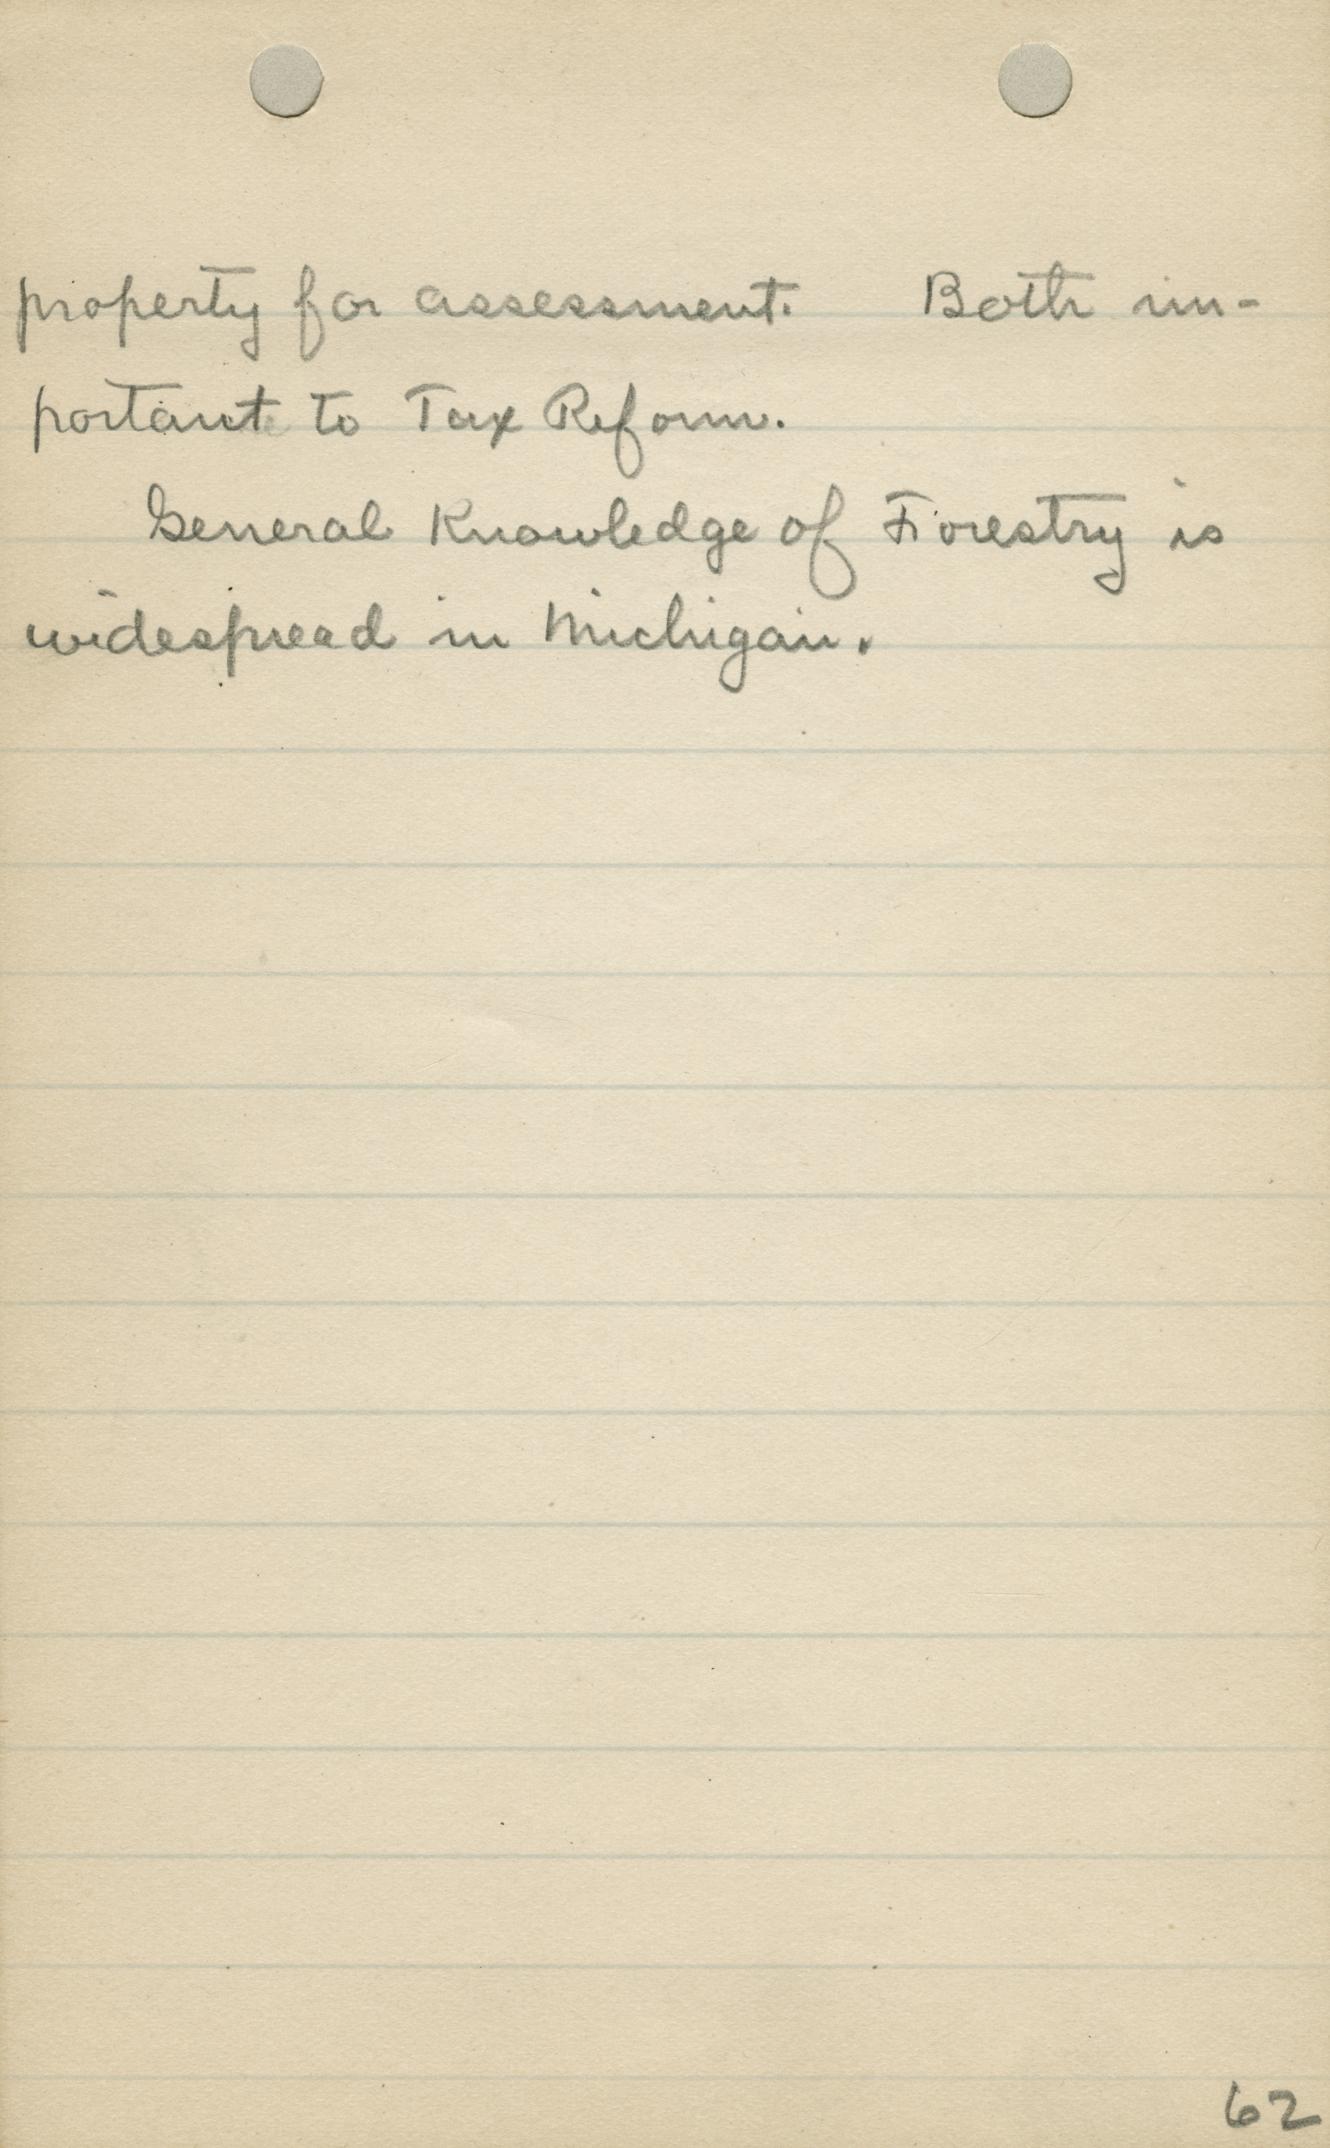 property for assessment. Both im-
portant to Tax Reform.
General Knowledge of Forestry is
widespread in Michigan.
62